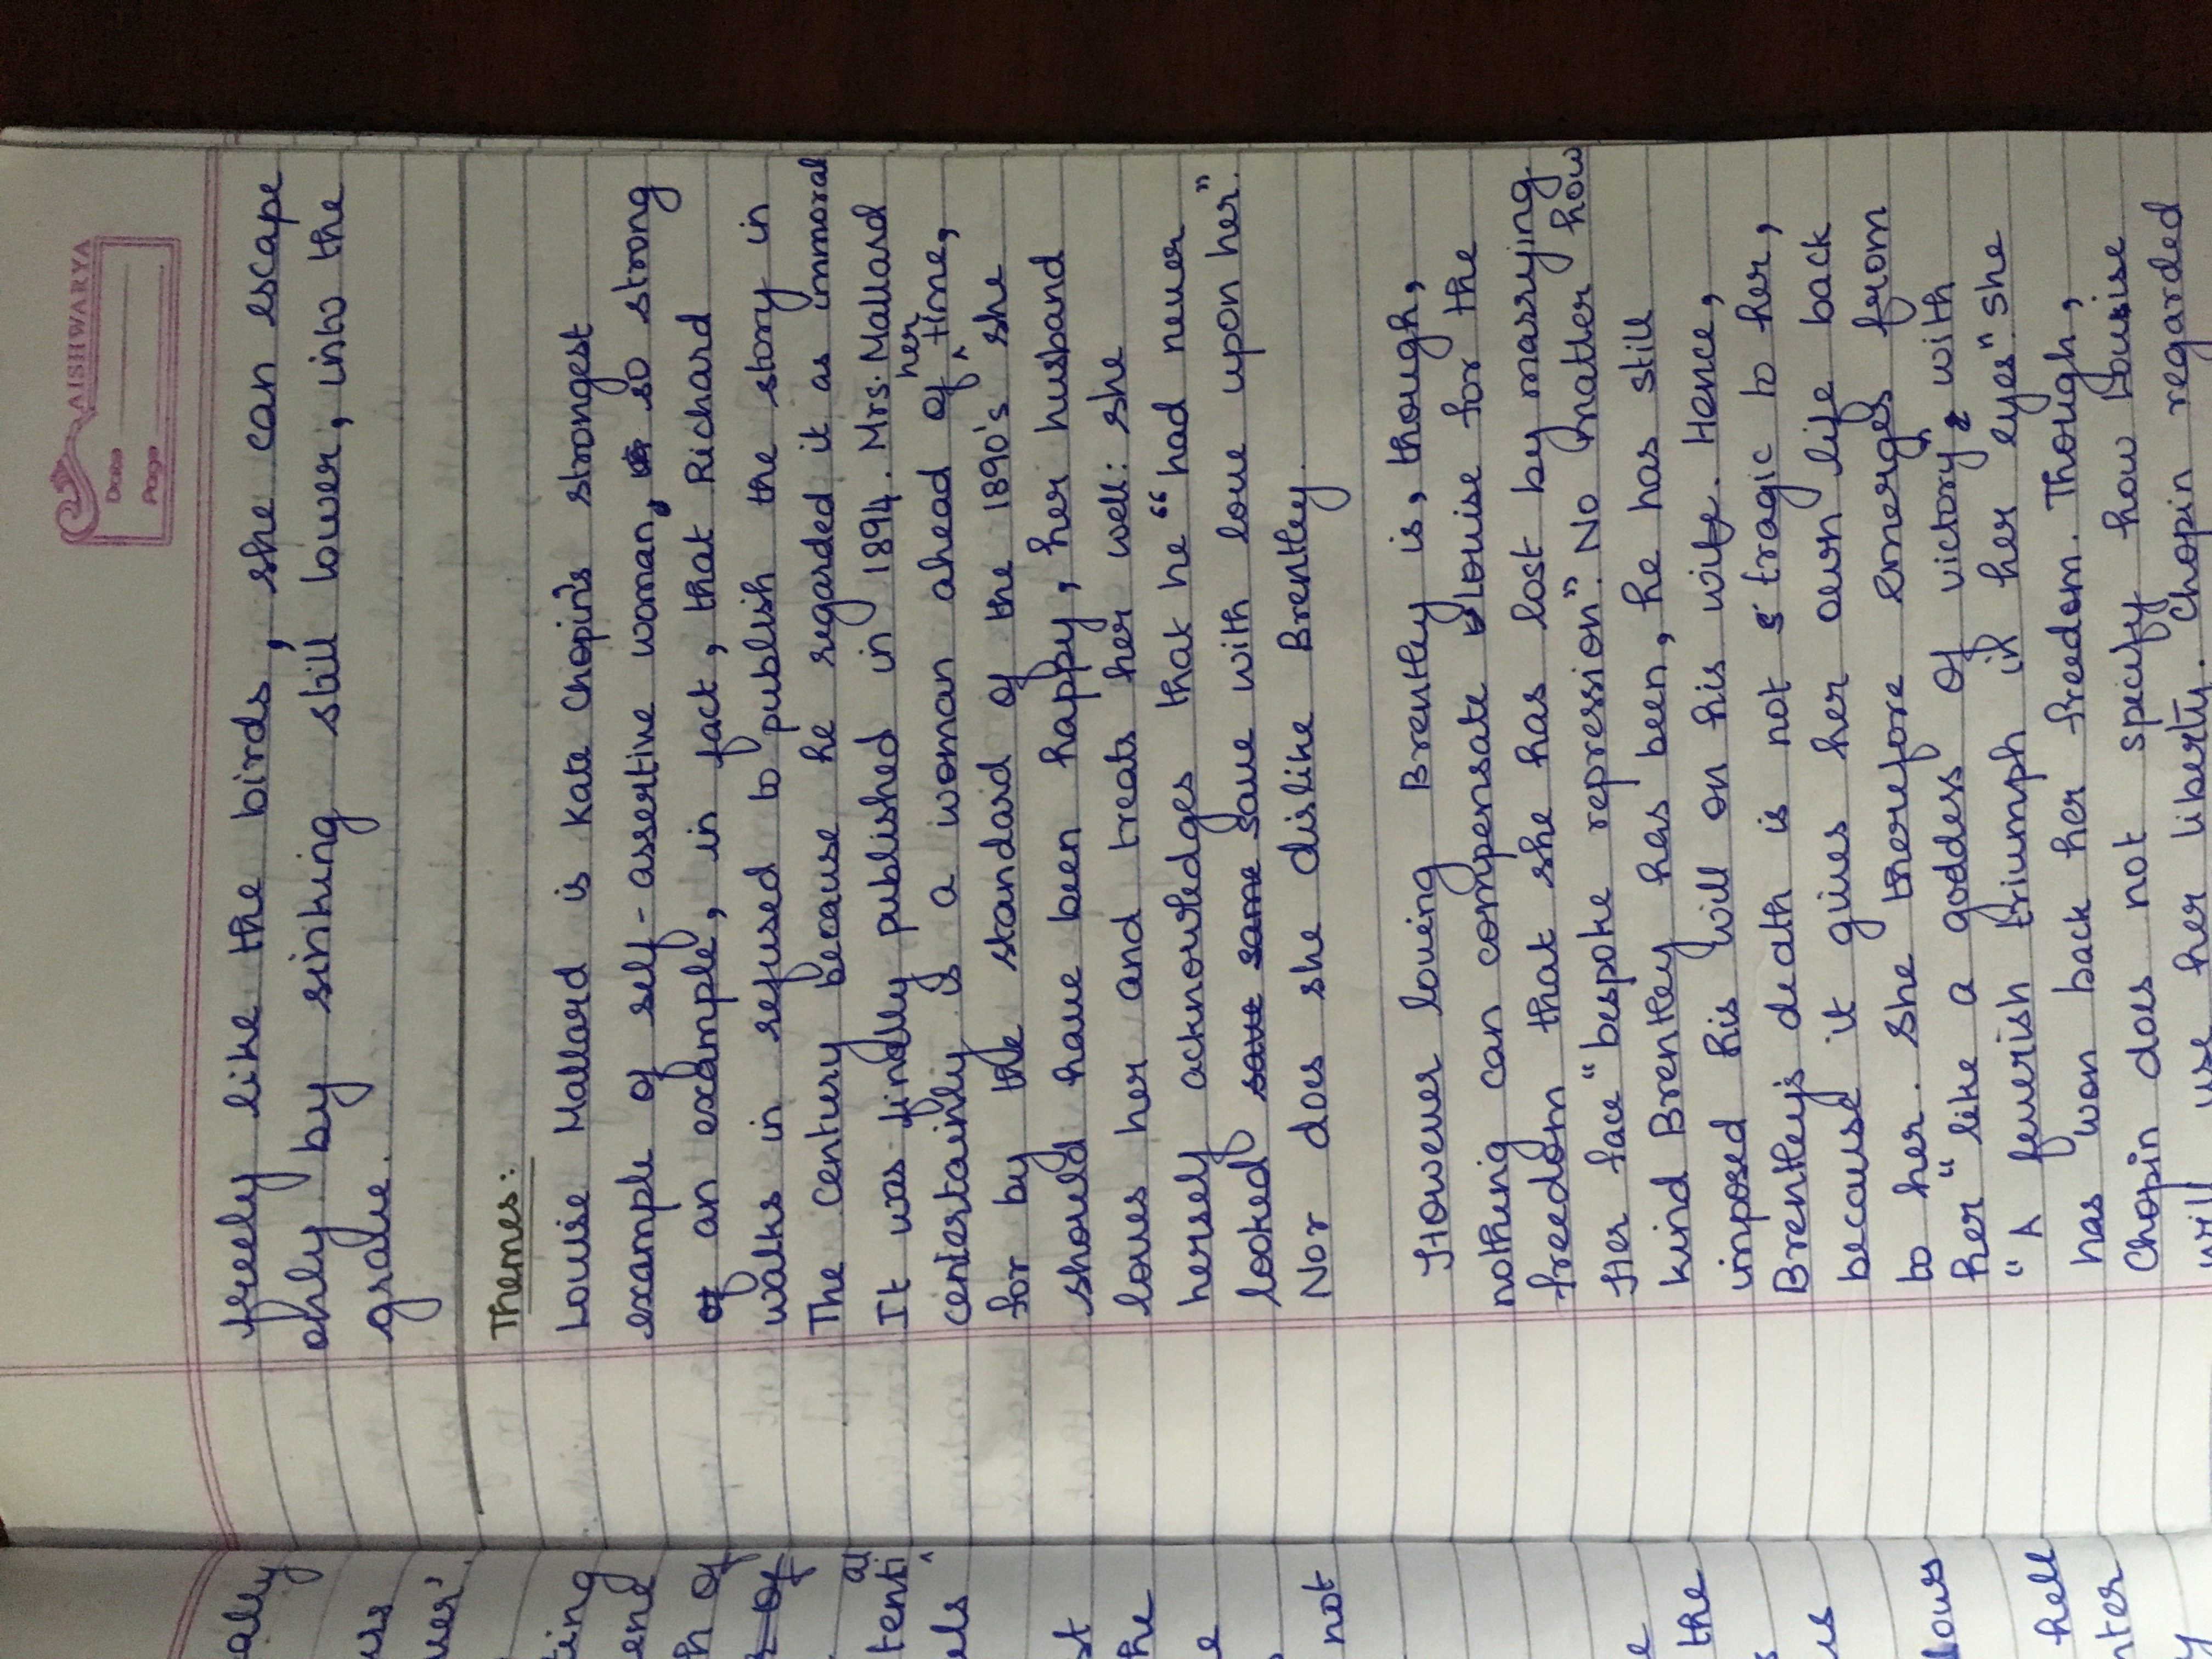 AISHWARYA
Date
Page
freely like the birds, she can escape
only by sinking still lower, into the
grave.
Themes:
Louise Mallard is Kate Chopin's strongest
example of self-assertive woman, so strong
of an example, in fact, that Richard
walks in refused to publish the story in
The Century because he regarded it as immoral
It was finally published in 1894. Mrs. Mallard
centertainly is a woman ahead of her time,
for by the standard of the 1890's she
should have been happy, her husband
loves her and treats her well: she
herself acknowledges that he "had never
looked save same save with love upon her".
Nor does she dislike Brentley.
However loving Brentley is, though,
nothing can compensate Louise for the
freedom that she has lost by marrying
Her face "bespoke repression". No matter how
kind Brentley has been, he has still
imposed his will on his wife. Hence,
Brentley's death is not tragic to her,
because it gives her own life back
to her. She therefore emerges from
her "like a goddess of victory", with
"A feverish triumph in her eyes". She
has won back her freedom. Though,
Chopin does not specify how Louisise
will use her liberty. Chopin regarded
ally
user'.
ting
ene
h of
of
al
tenti
els
st
he
e
not
e
the
us
lows
hell
nter
y